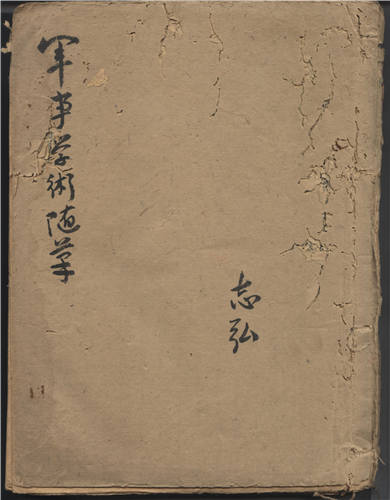 军事学術随筆
志弘